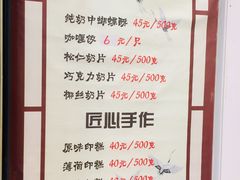 纯奶中蝴蝶酥 45元/500克
咖喱饺 6元/只
松仁奶片 45元/500克
巧克力奶片 45元/500克
椰丝奶片 45元/500克
匠心手作
原味印糕 40元/500克
薄荷印糕 40元/500克
40元/500克